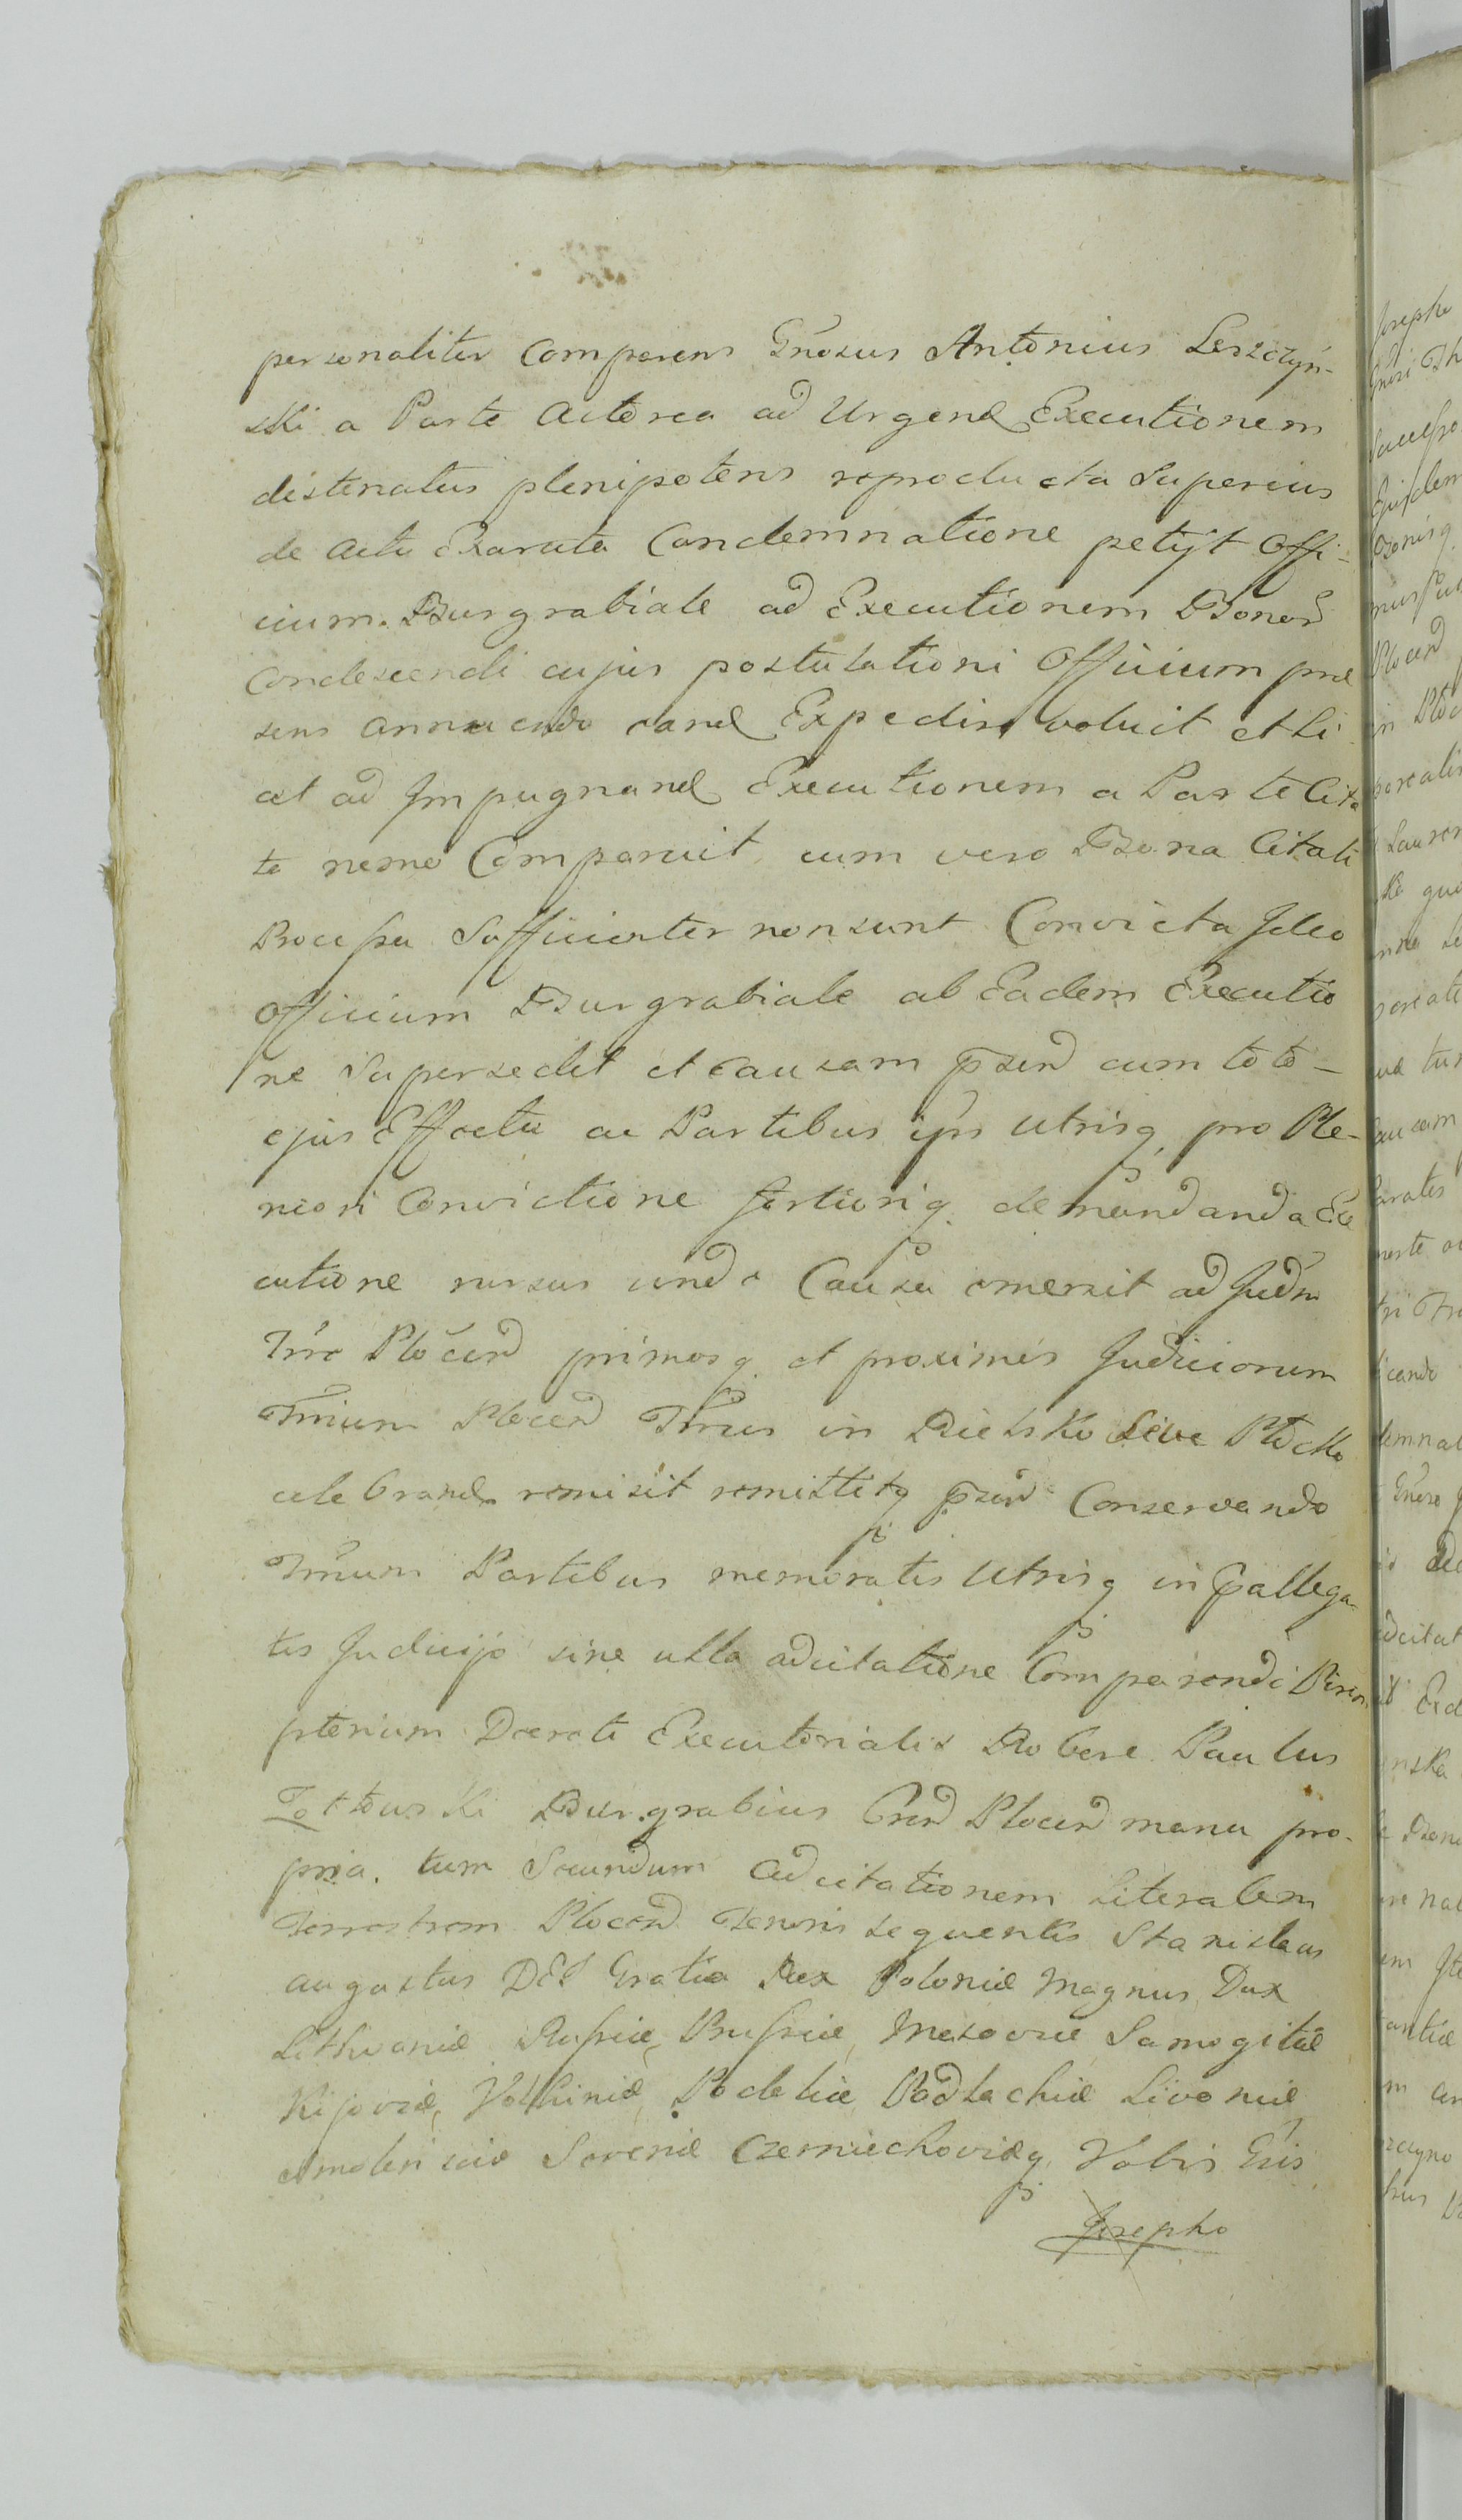 personaliter Comparens Gnosus Antonius Leszczyń-
ski a Parte Actorea ad Urgend Executionem
destinatus plenipotens reproducta Superius
de Actu Exarata Condemnatione petijt Offi-
cium Burgrabiale ad Executionem Bonor
Condescendi cujus postulationi Officium prae
sens annuendo eand Expedire voluit et li
cet ad Impugnand Executionem a Parte Cita
ta nemo Comparuit, cum vero Bona Citati
Processu Sufficienter non sunt Convicta Ideo
Officium Burgrabiale ab Eadem Executio
ne Supersedit et Causam psen cum toto-
ejus Effectu ac Partibus ipis Utrisq pro Ple-
niori Convictione fortioriq demandanda Exe
cutione rursus unde Causa emersit ad Judm
Trre Plocen primosq et proximos Judiciorum
Trrium Plocen Trnus in Bielsko Sive Płocko
celebrand remisit remittitq psen Conservando
Trnum Partibus memoratis Utrisq in pallega-
tis Judicijs sine ulla adcitatione Comparendi Perem
ptorium Decreti Executorialis Robore Paulus
Burgrabius Cren Plocen manu pro-
pria. tum Secundum Adcitationem Literalem
Terrestrem Plocen Tenoris sequentis Stanislaus
augustus DEI Gratia Rex Poloniæ Magnus Dux
Lithvaniæ Russiæ, Prussiæ, Mazoviæ Samogitiæ
Kijoviæ, Volhiniæ, Podoliæ Podlachiæ Livoniæ
Smolensciæ Severiæ Czerniechoviæq Vobis Gsis
Josepho